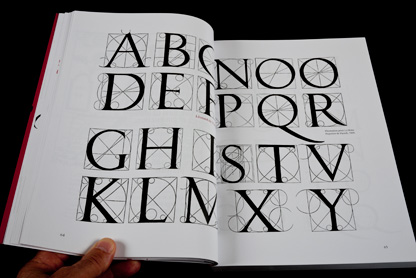 A B C
D E F
G H I
K L M
N O O
P Q R
S T V
X Y